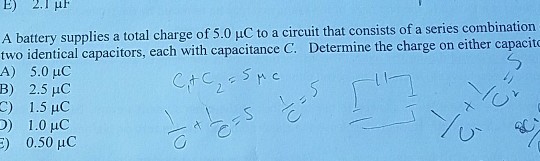 E) 2.1 µF
A battery supplies a total charge of 5.0 µC to a circuit that consists of a series combination
two identical capacitors, each with capacitance C. Determine the charge on either capacito
A) 5.0 µC
B) 2.5 µC
C) 1.5 µC
D) 1.0 µC
E) 0.50 µC
C₁+C₂=5µc
1/C+1/C=5
1/C=5